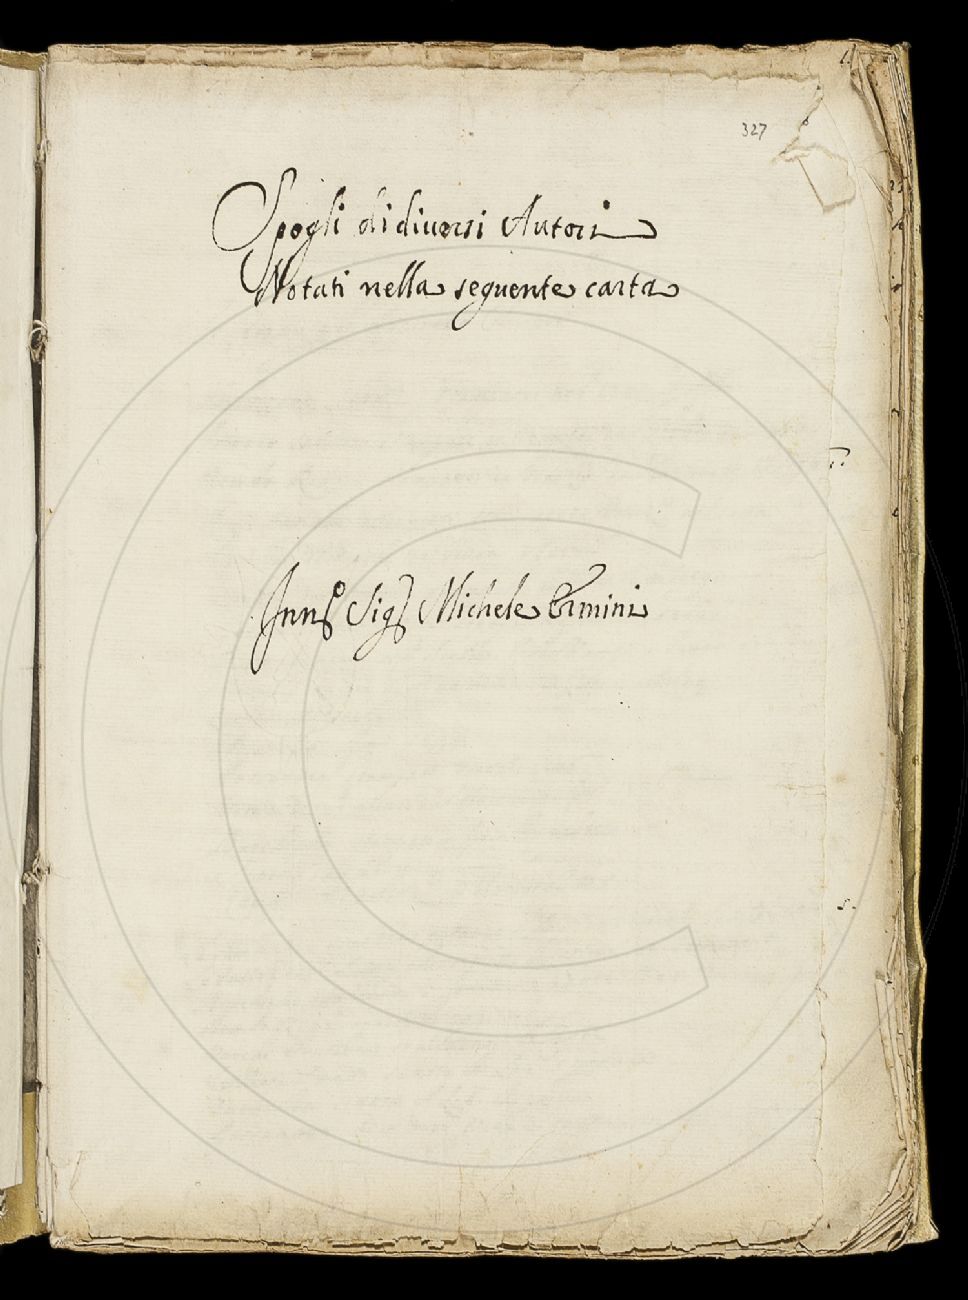 327
Spogli di diuersi Autori
Notati nella seguente carta
Sig.r Michele Ermini